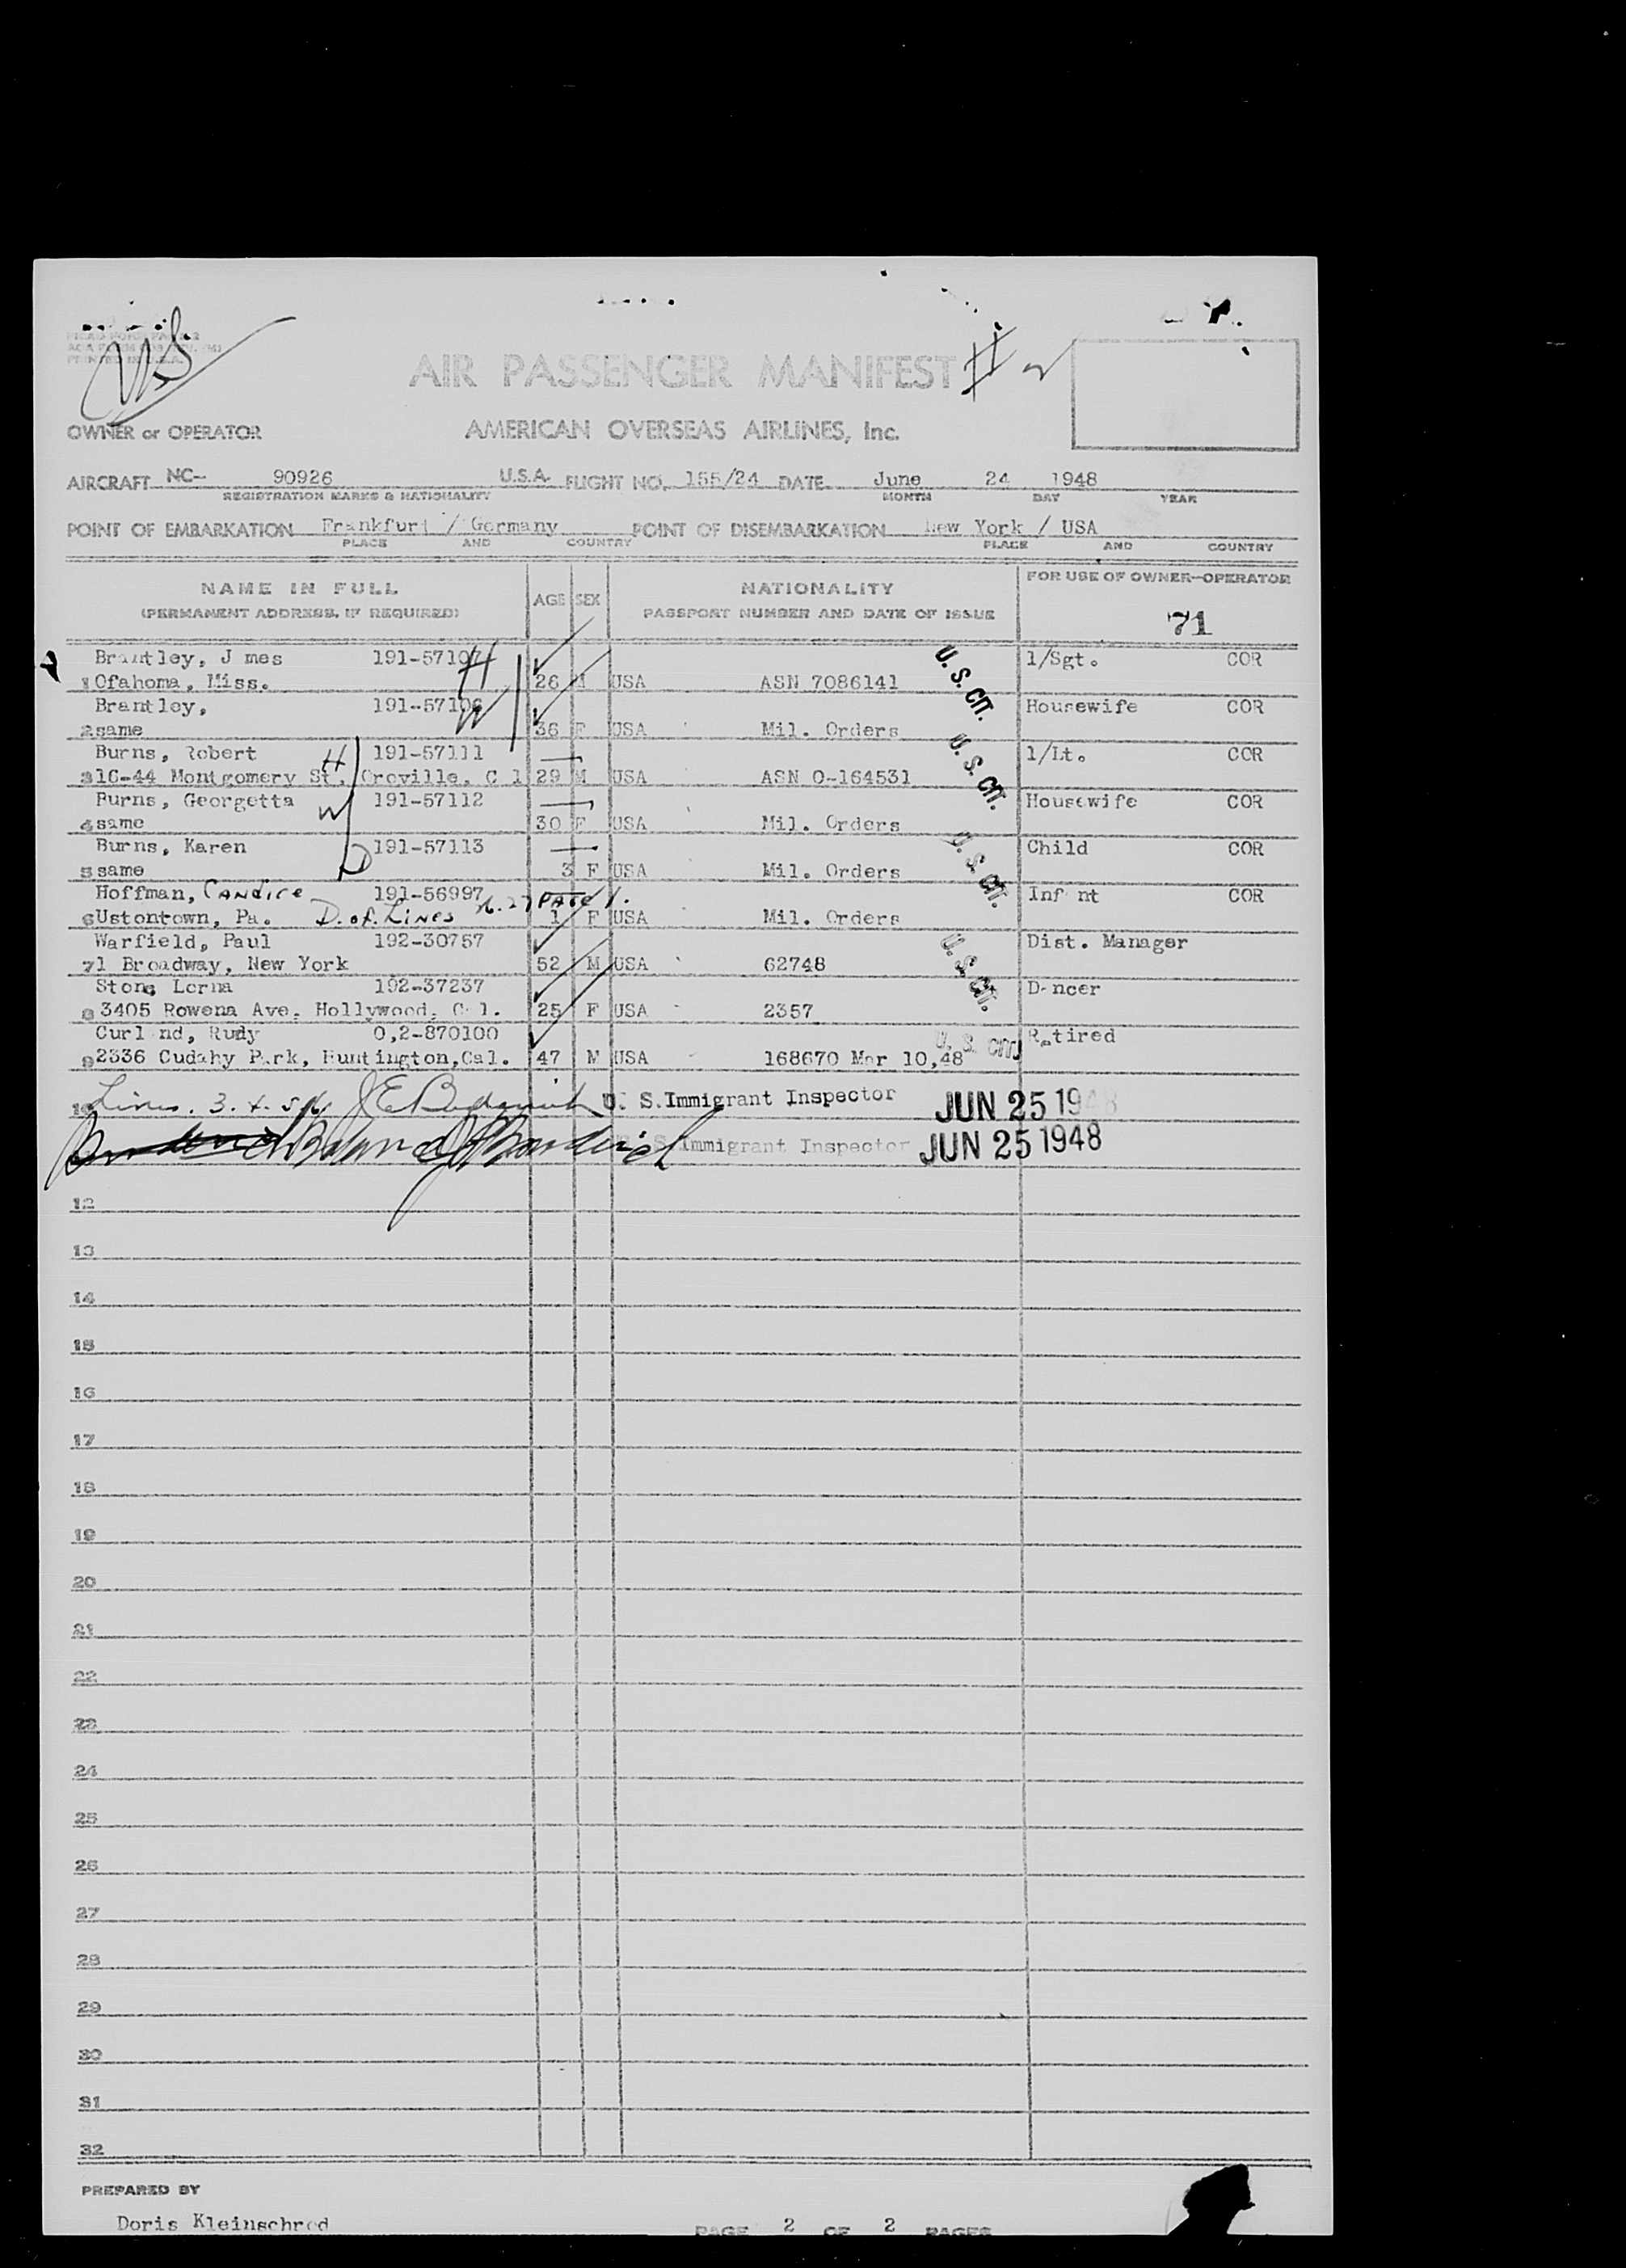 PRINTED IN U.S.A.
AIR PASSENGER MANIFEST # 2
OWNER or OPERATOR AMERICAN OVERSEAS AIRLINES, Inc.
AIRCRAFT NC- 90926 U.S.A. FLIGHT NO. 155/24 DATE June 24 1948
REGISTRATION MARKS & NATIONALITY MONTH DAY YEAR
POINT OF EMBARKATION Frankfurt / Germany POINT OF DISEMBARKATION New York / USA
PLACE AND COUNTRY PLACE AND COUNTRY
NAME IN FULL AGE SEX NATIONALITY FOR USE OF OWNER-OPERATOR
(PERMANENT ADDRESS, IF REQUIRED) PASSPORT NUMBER AND DATE OF ISSUE 71
Brantley, J mes 191-57107 H 1/Sgt. COR
1 Ofahoma, Miss. 26 M USA ASN 7086141 U. S. CIT.
Brantley, 191-57106 W Housewife COR
2 same 36 F USA Mil. Orders
Burns, Robert H 191-57111 1/Lt. COR
3 16-44 Montgomery St, Oroville, C l 29 M USA ASN O-164531 U. S. CIT.
Burns, Georgetta W 191-57112 Housewife COR
4 same 30 F USA Mil. Orders
Burns, Karen D 191-57113 Child COR
5 same 3 F USA Mil. Orders U. S. CIT.
Hoffman, CANDICE 191-56997 PAGE 1. Inf nt COR
6 Ustontown, Pa. D. of. Lines 1 F USA Mil. Orders
Warfield, Paul 192-30757 Dist. Manager
7 1 Broadway, New York 52 M USA 62748 U. S. CIT.
Stone Lorna 192-37237 D ncer
8 3405 Rowena Ave. Hollywood, C l. 25 F USA 2357
Curl nd, Rudy 0,2-870100 U. S. CIT Retired
9 2336 Cudahy P rk, Huntington,Cal. 47 M USA 168670 Mar 10,48
10 Lines. 3. 4. 5 U. S. Immigrant Inspector JUN 25 1948
U. S. Immigrant Inspector JUN 25 1948
12
13
14
15
16
17
18
19
20
21
22
23
24
25
26
27
28
29
30
31
32
PREPARED BY
Doris Kleinschrod
PAGE 2 OF 2 PAGES